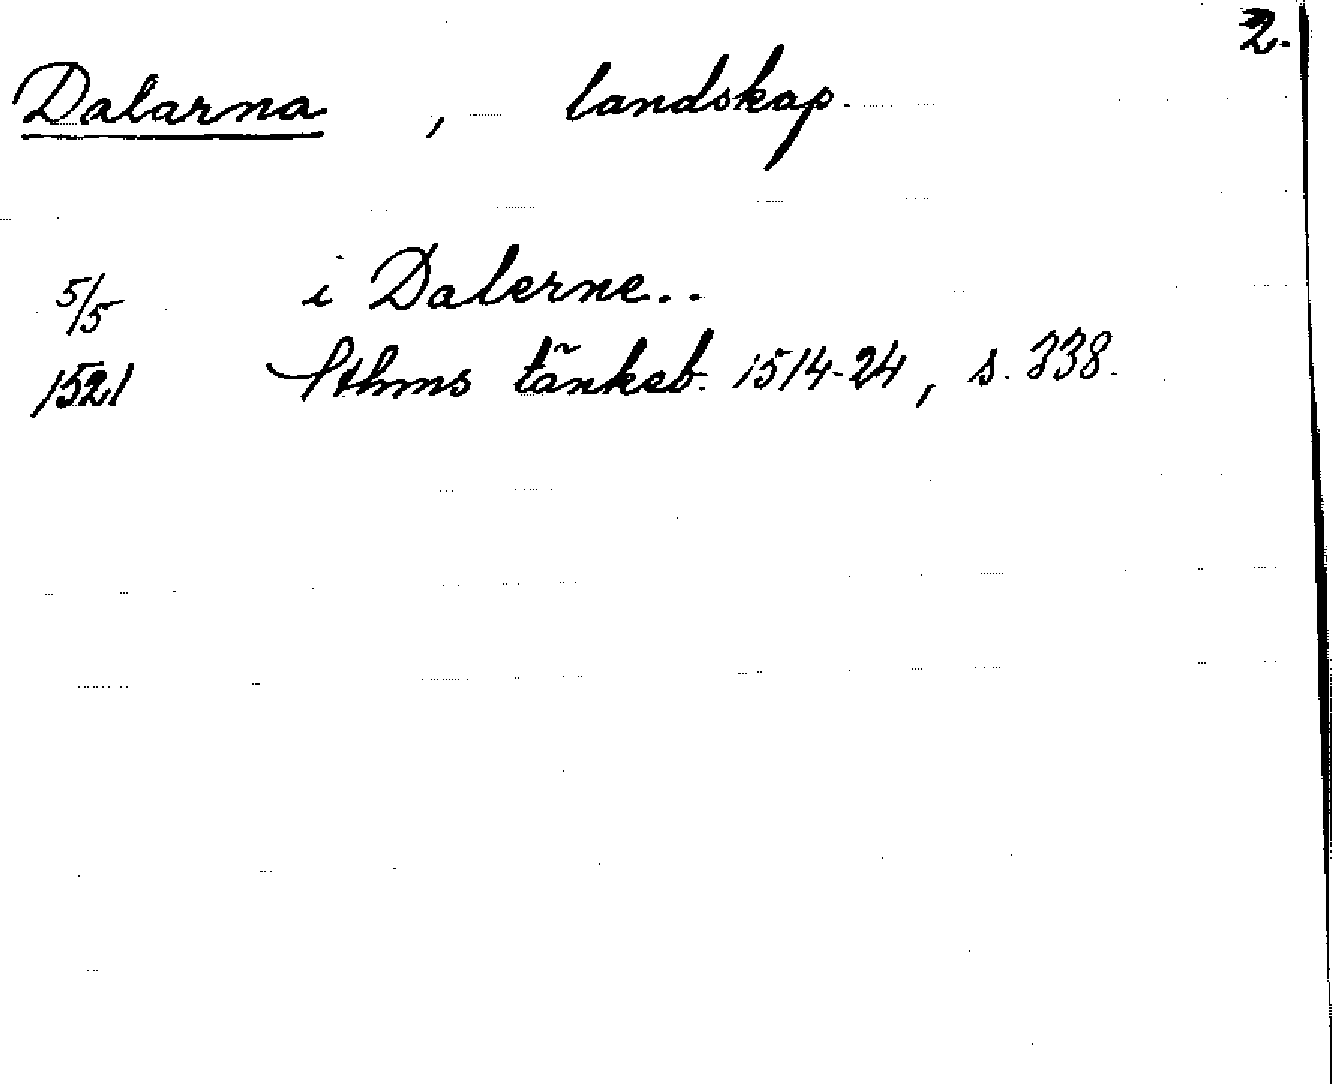 2.
Dalarna, landskap.
5/5 i Dalerne..
1521 Sthms tänkeb. 1514-24, s. 338.